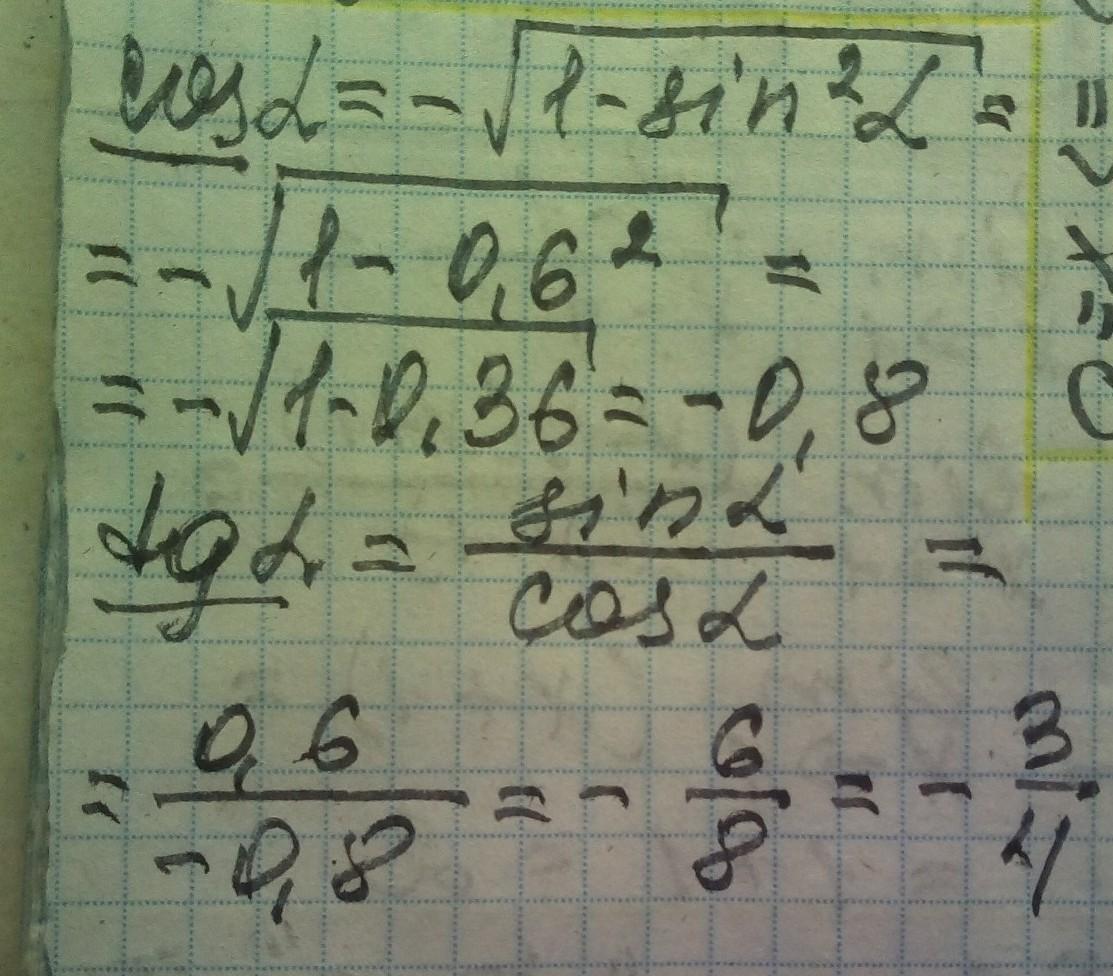 cosα = -√(1 - sin²α) =
= -√(1 - 0,6²) =
= -√(1 - 0,36) = -0,8
tgα = sinα/cosα =
= 0,6/-0,8 = -6/8 = -3/4